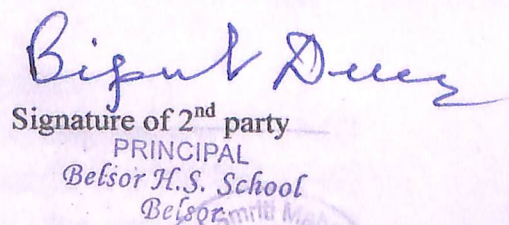 Bipul Deka
Signature of 2nd party
PRINCIPAL
Belsor H.S. School
Belsor